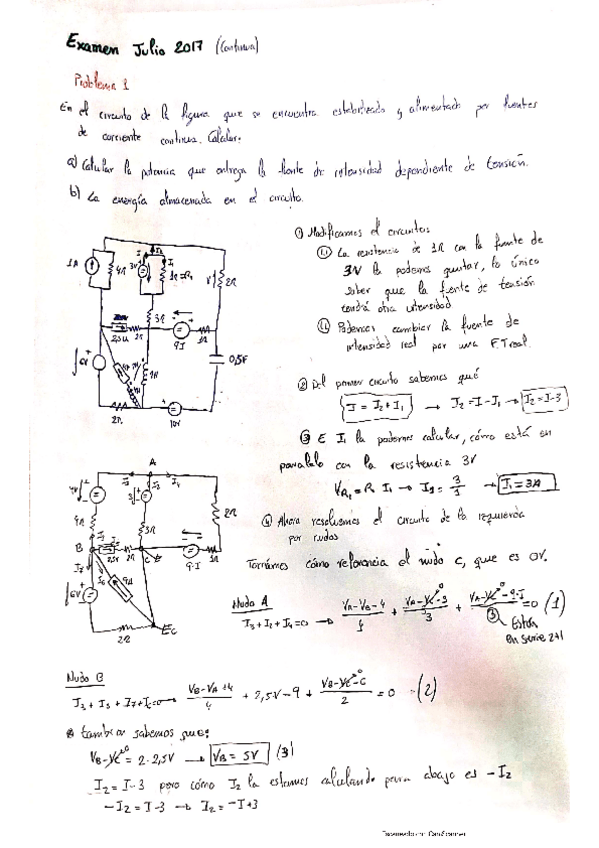 Examen Julio 2017 (Continua)
Problema 1
En el circuito de la figura que se encuentra estabilizado y alimentado por fuentes
de corriente continua. Calcular:
a) Calcular la potencia que entrega la fuente de intensidad dependiente de tensión.
b) La energía almacenada en el circuito.
① Modificamos el circuito
1.1 La resistencia de 1Ω con la fuente de
3V la podemos quitar, lo único
saber que la fuente de tensión
tendrá otra intensidad
Podemos cambiar la fuente de
intensidad real por una F.T real.
② Del primer circuito sabemos qué
I = I2 + I1 → I2 = I - I1 → I2 = I - 3
③ E I1 la podemos calcular, cómo está en
paralelo con la resistencia 3V
VR1 = R I1 → I1 = 3/1 → I1 = 3A
④ Ahora resolvemos el circuito de la izquierda
por nudos
Tomamos cómo referencia el nudo C, que es 0V.
Nudo A
I3 + I2 + I4 = 0 → (VA-VB-4)/4 + (VA-VC-3)/3 + (VA-VC-9·I)/3 = 0 (1)
Están
en serie 2+1
Nudo B
(VB-VA+4)/4 + 2,5V-9 + (VB-VC-6)/2 = 0 -(2)
tambien sabemos que:
VB-VC = 2·2,5V → VB = 5V (3)
I2 = I-3 pero cómo I2 la estamos calculando para abajo es -I2
-I2 = I-3 → I2 = -I+3
1A
4Ω
3V
1Ω=R1
2Ω
3Ω
9I
0,5F
2Ω
10V
A
2Ω
3Ω
B
9·I
6V
2Ω
Escaneado con CamScanner